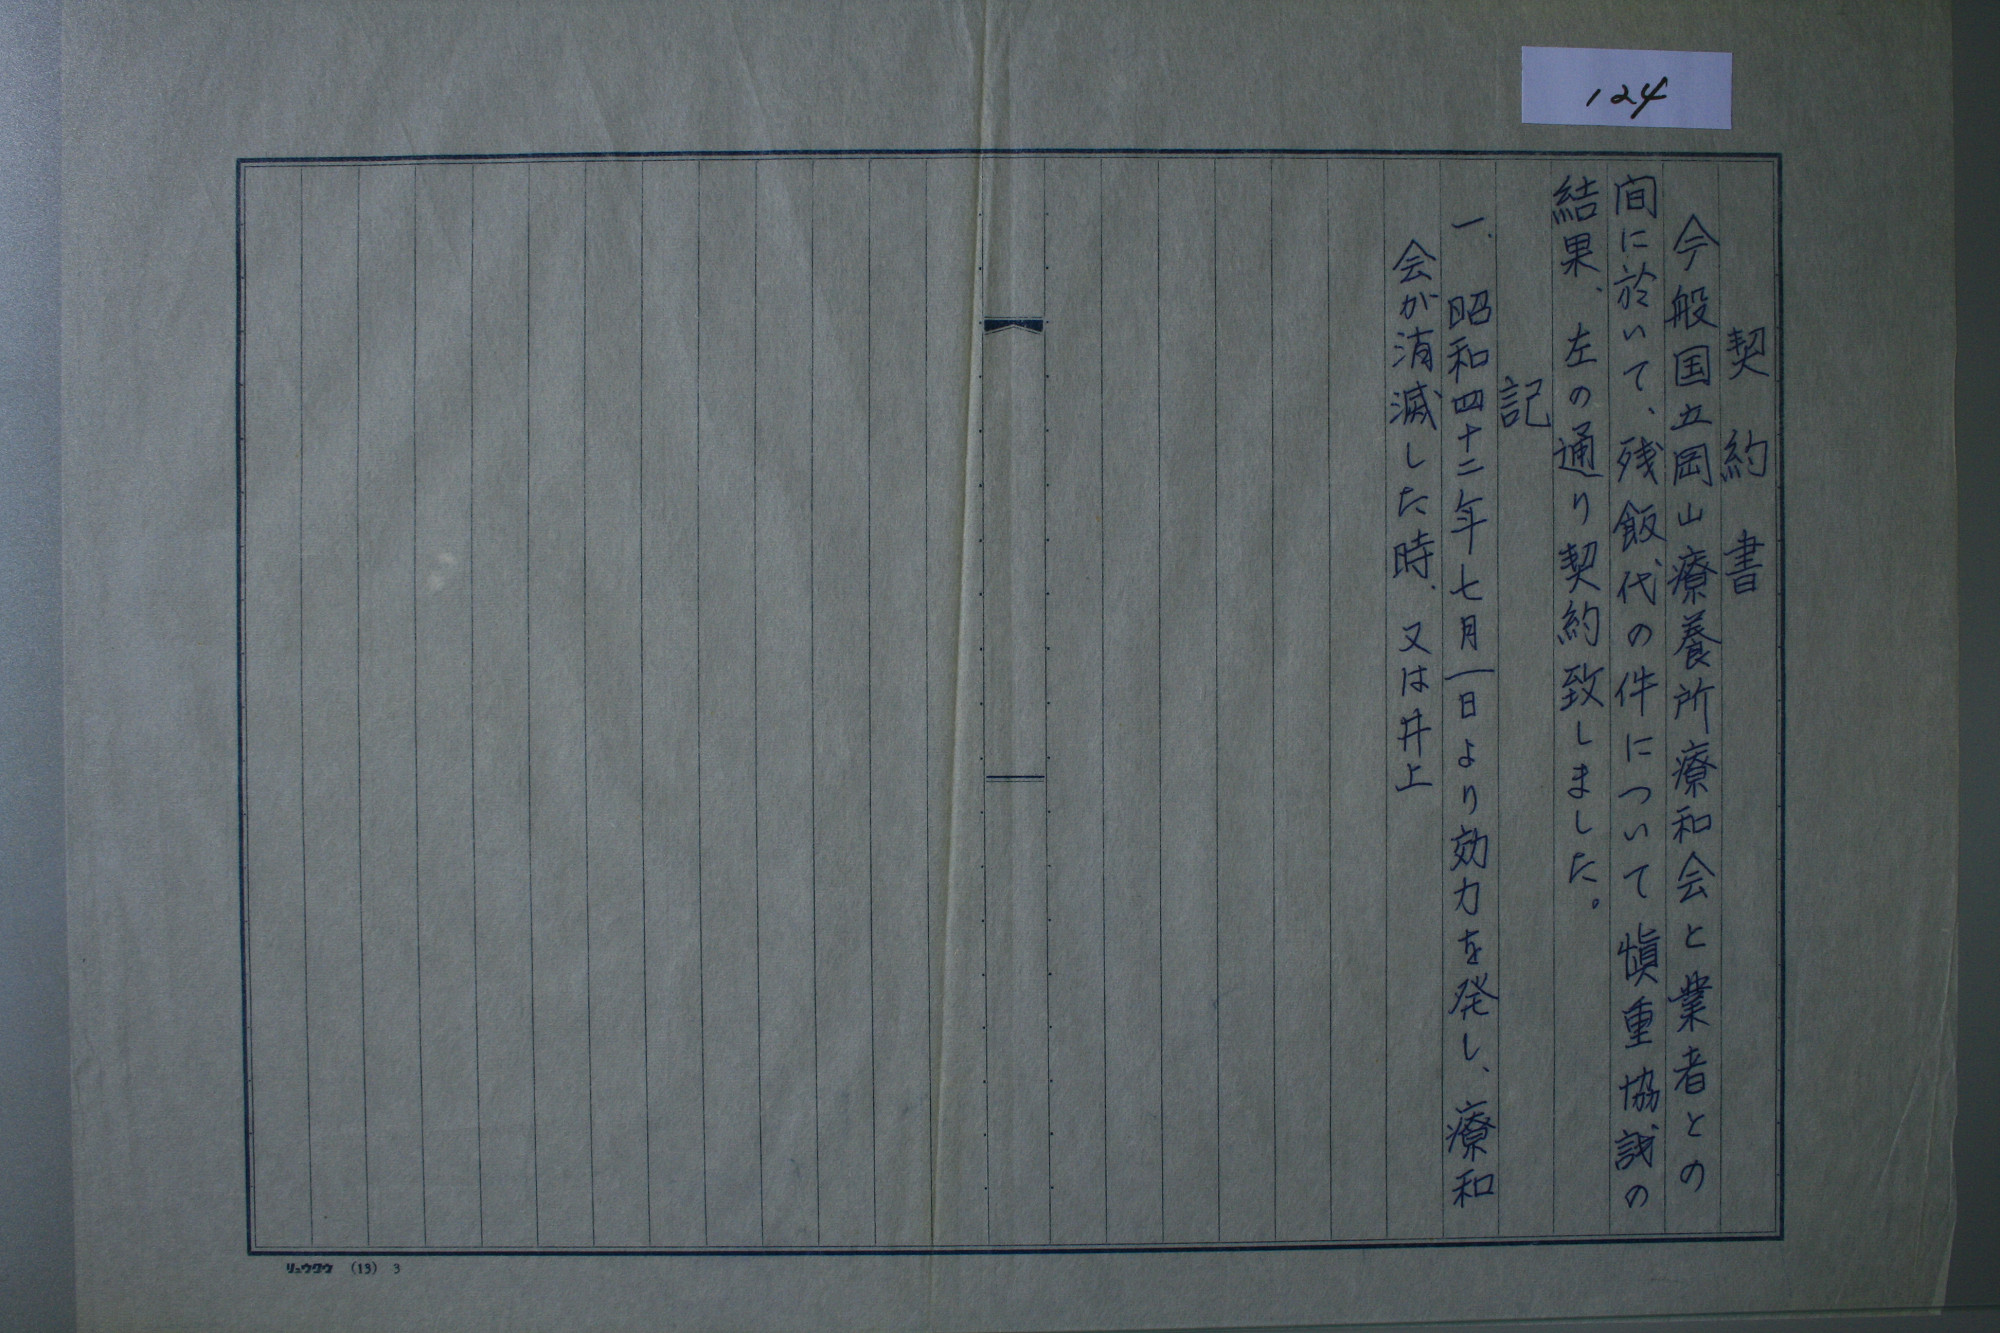 124
契約書
今般国立岡山療養所療和会と業者との
間に於いて、残飯代の件について慎重協議の
結果、左の通り契約致しました。
記
一、昭和四十二年七月一日より効力を発し、療和
会が消滅した時、又は井上
リュウクウ (13) 3